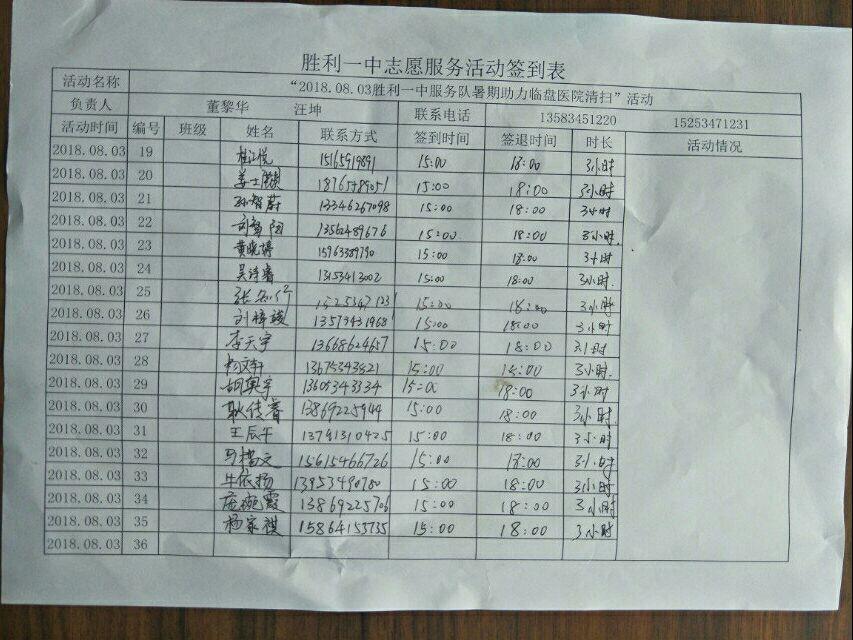 胜利一中志愿服务活动签到表
活动名称 “2018.08.03胜利一中服务队暑期助力临盘医院清扫”活动
负责人 董黎华 汪坤 联系电话 13583451220 15253471231
活动时间 编号 班级 姓名 联系方式 签到时间 签退时间 时长 活动情况
2018.08.03 19 15165919891 15:00 18:00 3小时
2018.08.03 20 15:00 18:00 3小时
2018.08.03 21 孙智蔚 13346267098 15:00 18:00 3小时
2018.08.03 22 13562489676 15:00 18:00 3小时.
2018.08.03 23 黄晓婷 15963389790 15:00 18:00 3小时
2018.08.03 24 吴泽睿 13153413002 15:00 18:00 3小时.
2018.08.03 25 15:00 18:00 3小时
2018.08.03 26 15:00 18:00 3小时
2018.08.03 27 李天宇 13668624657 15:00 18:00 3小时
2018.08.03 28 杨文轩 13675343521 15:00 3小时.
2018.08.03 29 胡奥宇 13605343334 15:00 18:00 3小时
2018.08.03 30 耿传睿 13869225944 15:00 18:00 3小时.
2018.08.03 31 王辰午 13791310425 15:00 18:00 3小时
2018.08.03 32 马楷文 15615466726 15:00 18:00 3小时
2018.08.03 33 牛依扬 13953490780 15:00 18:00 3小时
2018.08.03 34 15:00 18:00 3小时
2018.08.03 35 杨家祺 15864155735 15:00 18:00 3小时
2018.08.03 36